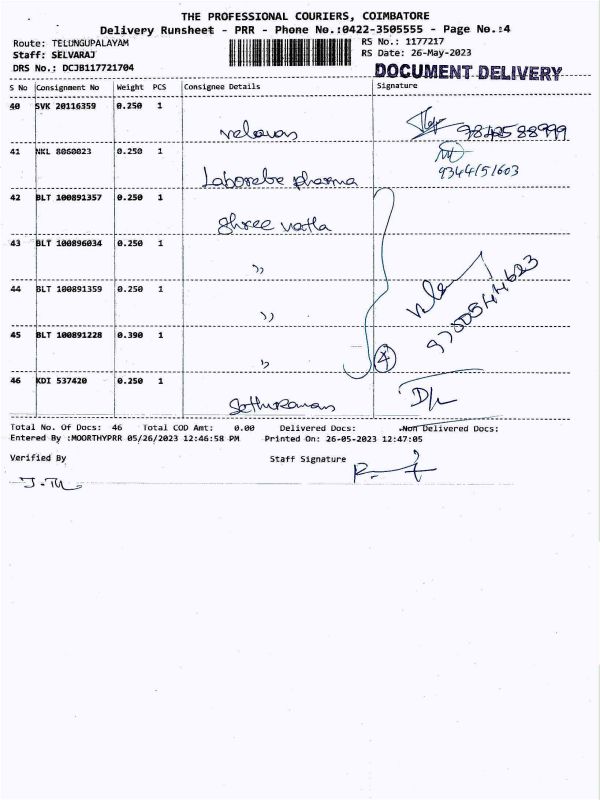 THE PROFESSIONAL COURIERS, COIMBATORE
Delivery Runsheet - PRR - Phone No.:0422-3505555 - Page No.:4
Route: TELUNGUPALAYAM
Staff: SELVARAJ
DRS No.: DCJB117721704
RS No.: 1177217
RS Date: 26-May-2023
DOCUMENT DELIVERY
S No Consignment No Weight PCS Consignee Details Signature
40 SVK 20116359 0.250 1
velavan
41 NKL 8060023 0.250 1
9344151603
Laborate pharma
42 BLT 100891357 0.250 1
Shree vatla
43 BLT 100896034 0.250 1
"
44 BLT 100891359 0.250 1
"
9700544623
45 BLT 100891228 0.390 1
"
4
46 KDI 537420 0.250 1
Sethuraman
Total No. Of Docs: 46 Total COD Amt: 0.00 Delivered Docs: Non Delivered Docs:
Entered By :MOORTHYPRR 05/26/2023 12:46:58 PM Printed On: 26-05-2023 12:47:05
Verified By Staff Signature